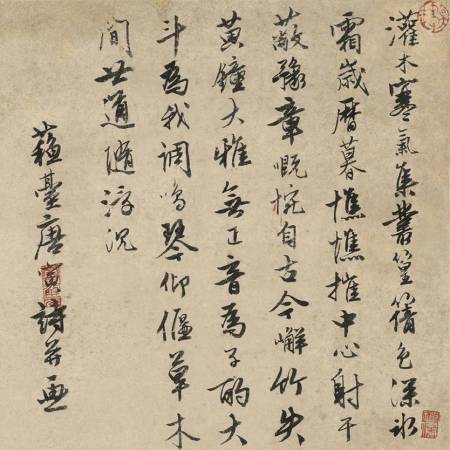 灌木寒氣集叢篁蒨色深冰
霜歲曆暮憔憔摧中心射干
蔽豫章慨惋自古今嶰竹失
黃鐘大雅無正音為子酌大
斗為我調鳴琴仰偃草木
間世道隨浮沉
蘇臺唐寅詩并畫